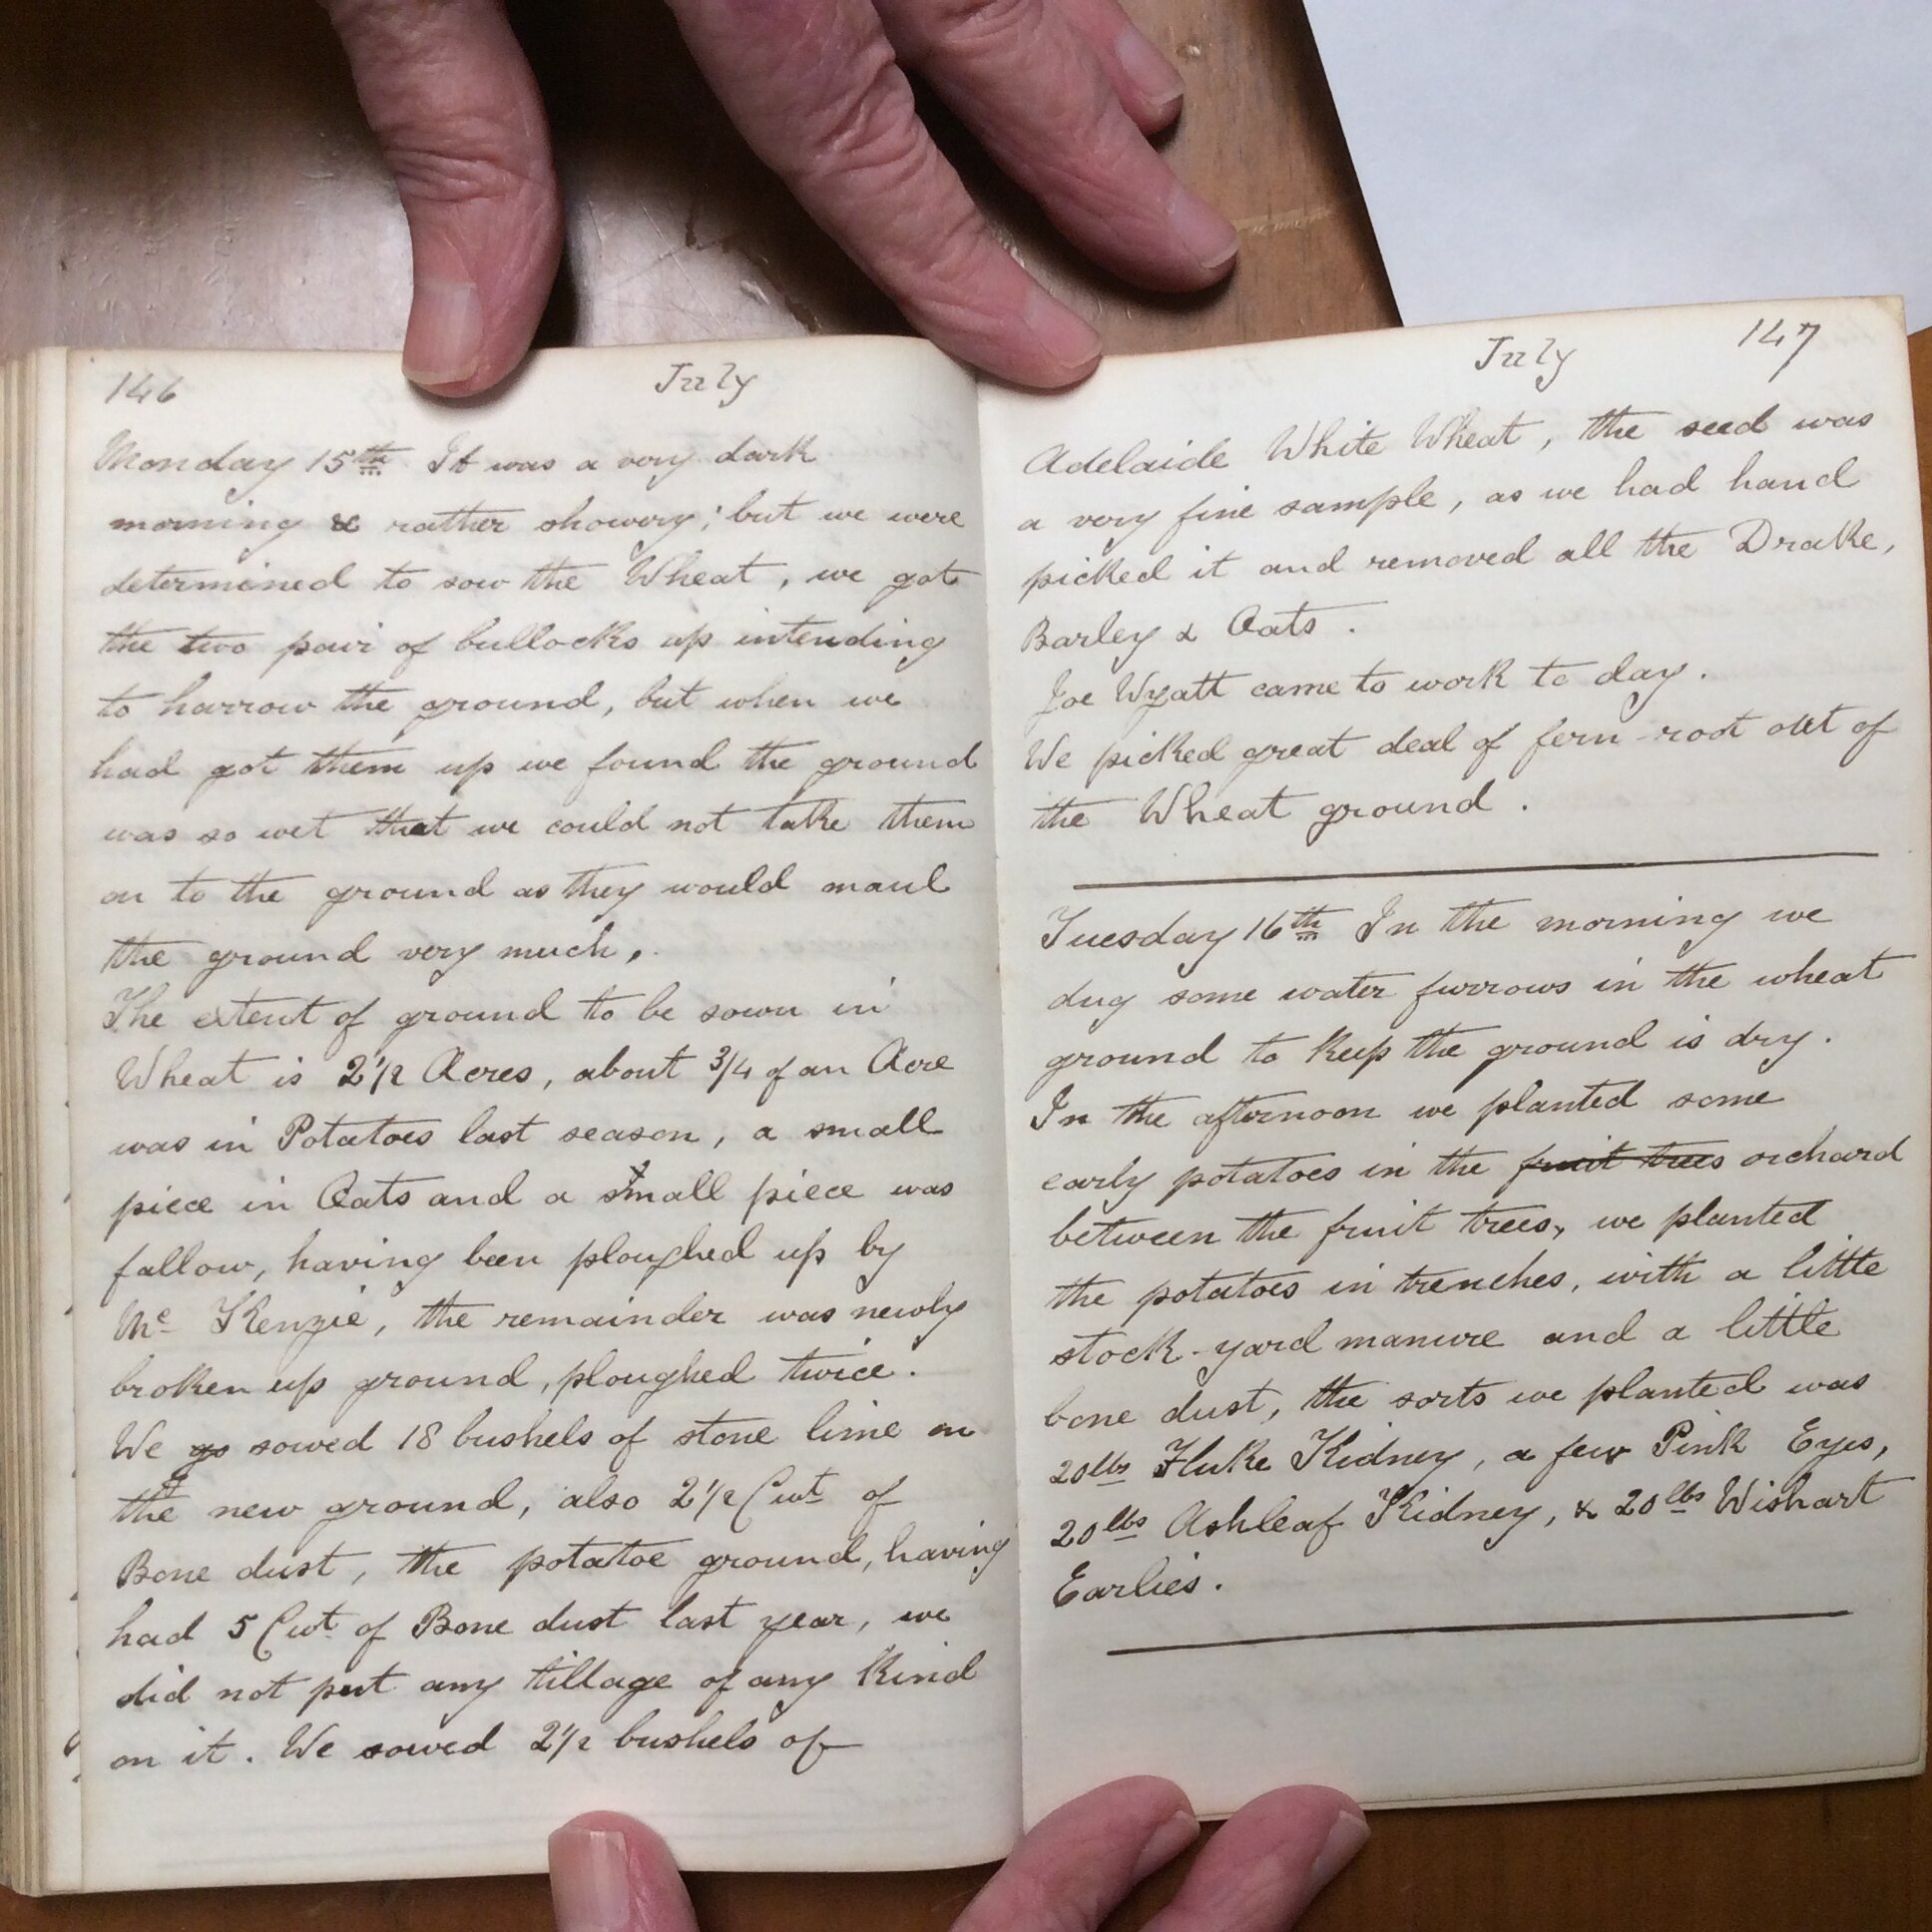 146 July
Monday 15th It was a very dark
morning & rather showery; but we were
determined to sow the Wheat, we got
the two pair of bullocks up intending
to harrow the ground, but when we
had got them up we found the ground
was so wet that we could not take them
on to the ground as they would maul
the ground very much,.
The extent of ground to be sown in
Wheat is 2 1/2 Acres, about 3/4 of an Acre
was in Potatoes last season, a small
piece in Oats and a small piece was
fallow, having been ploughed up by
Mc Kenzie, the remainder was newly
broken up ground, ploughed twice.
We go sowed 18 bushels of stone lime on
the new ground, also 2 1/2 Cwt of
Bone dust, the potatoe ground, having
had 5 Cwt of Bone dust last year, we
did not put any tillage of any Kind
on it. We sowed 2 1/2 bushels of
July 147
Adelaide White Wheat, the seed was
a very fine sample, as we had hand
picked it and removed all the Drake,
Barley & Oats.
Joe Wyatt came to work to day.
We picked great deal of fern-root out of
the Wheat ground.
Tuesday 16th In the morning we
dug some water furrows in the wheat
ground to Keep the ground is dry.
In the afternoon we planted some
early potatoes in the fruit trees orchard
between the fruit trees, we planted
the potatoes in trenches, with a little
stock-yard manure and a little
bone dust, the sorts we planted was
20lbs Fluke Kidney, a few Pink Eyes,
20lbs Ashleaf Kidney, & 20lbs Wishart
Earlies.